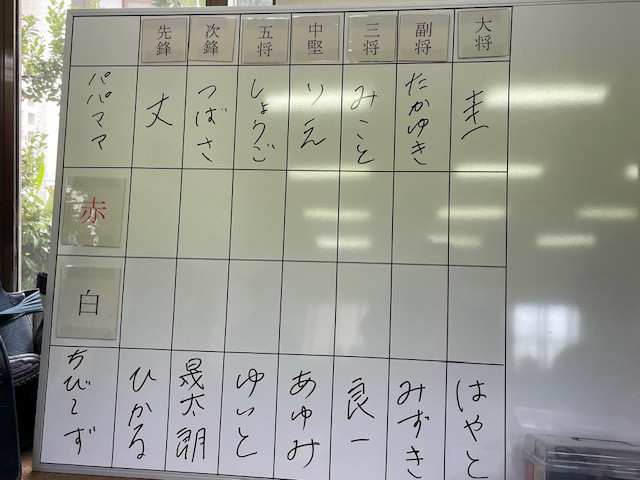 先鋒 次鋒 五将 中堅 三将 副将 大将
パパママ 丈 つばさ しょうご りえ みこと たかゆき 圭一
赤
白
ちびーず ひかる 晃太朗 ゆいと あゆみ 良一 みずき はやと